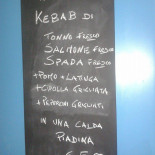 KEBAB DI
TONNO FRESCO
SALMONE FRESCO
SPADA FRESCO
+ POMO + LATTUGA
+ CIPOLLA GRIGLIATA
+ PEPERONI GRIGLIATI
IN UNA CALDA
PIADINA